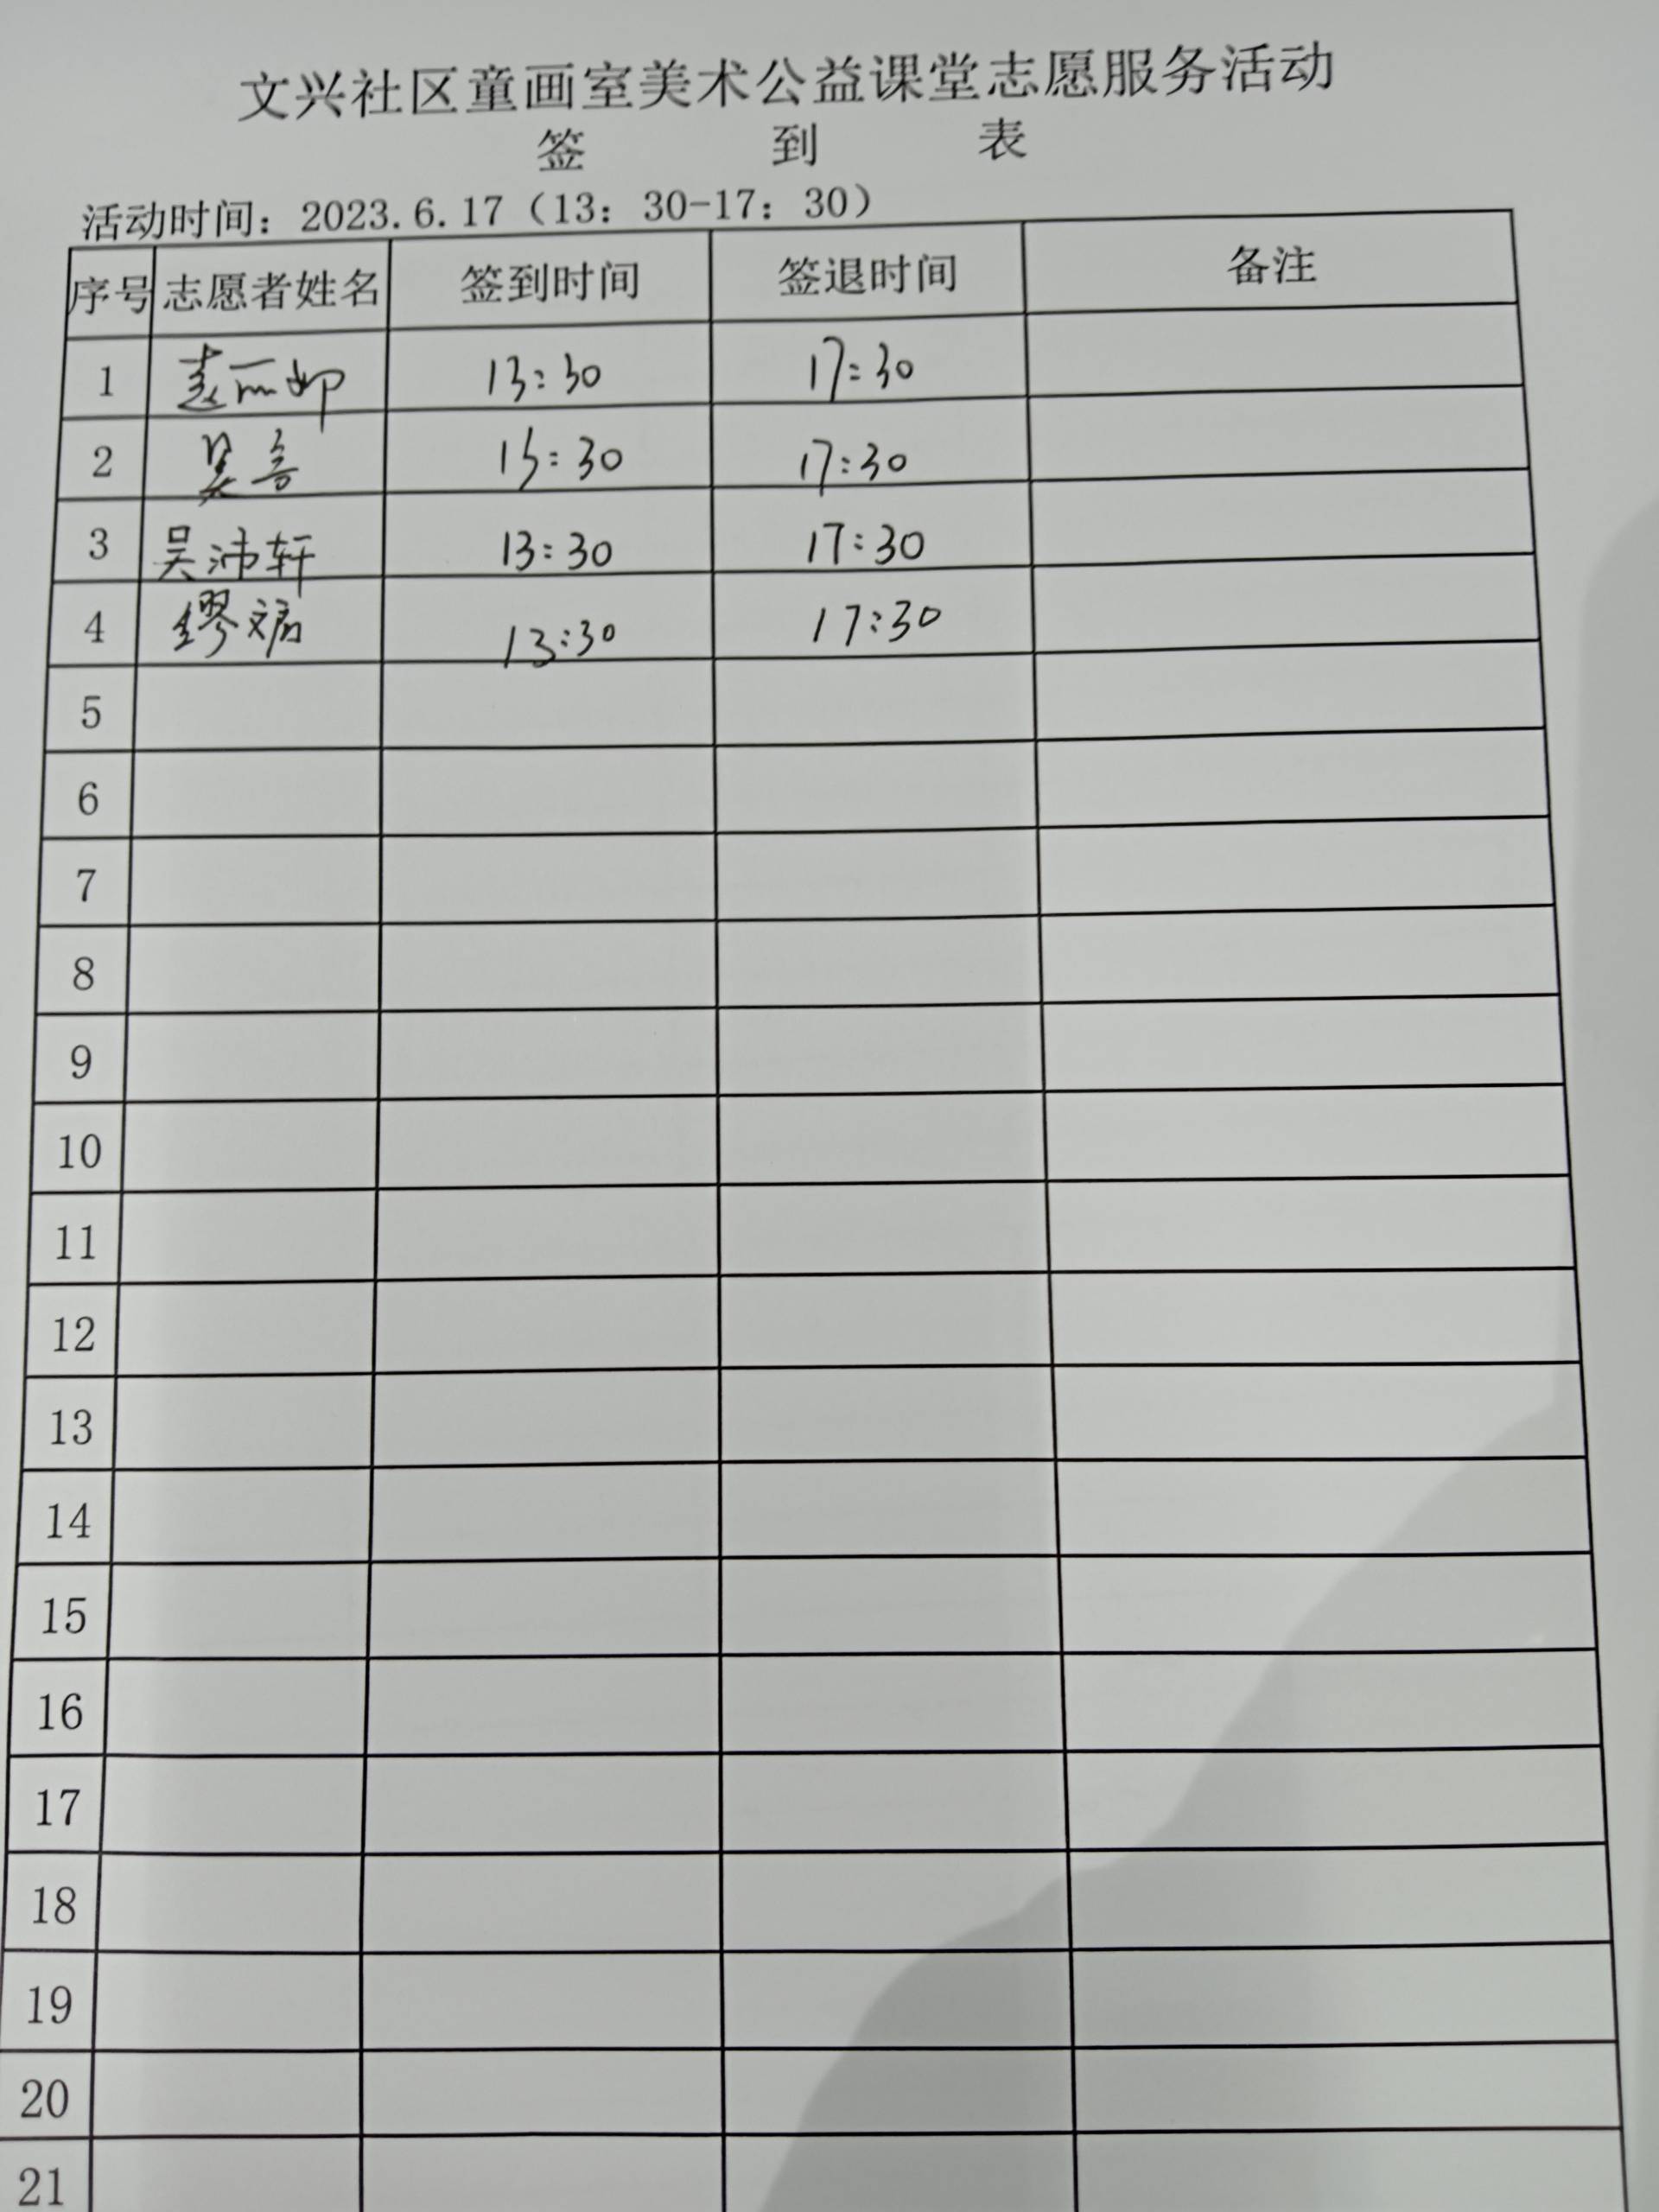 文兴社区童画室美术公益课堂志愿服务活动
签 到 表
活动时间：2023.6.17（13：30-17：30）
序号 志愿者姓名 签到时间 签退时间 备注
1 13:30 17:30
2 13:30 17:30
3 吴沛轩 13:30 17:30
4 缪 13:30 17:30
5
6
7
8
9
10
11
12
13
14
15
16
17
18
19
20
21